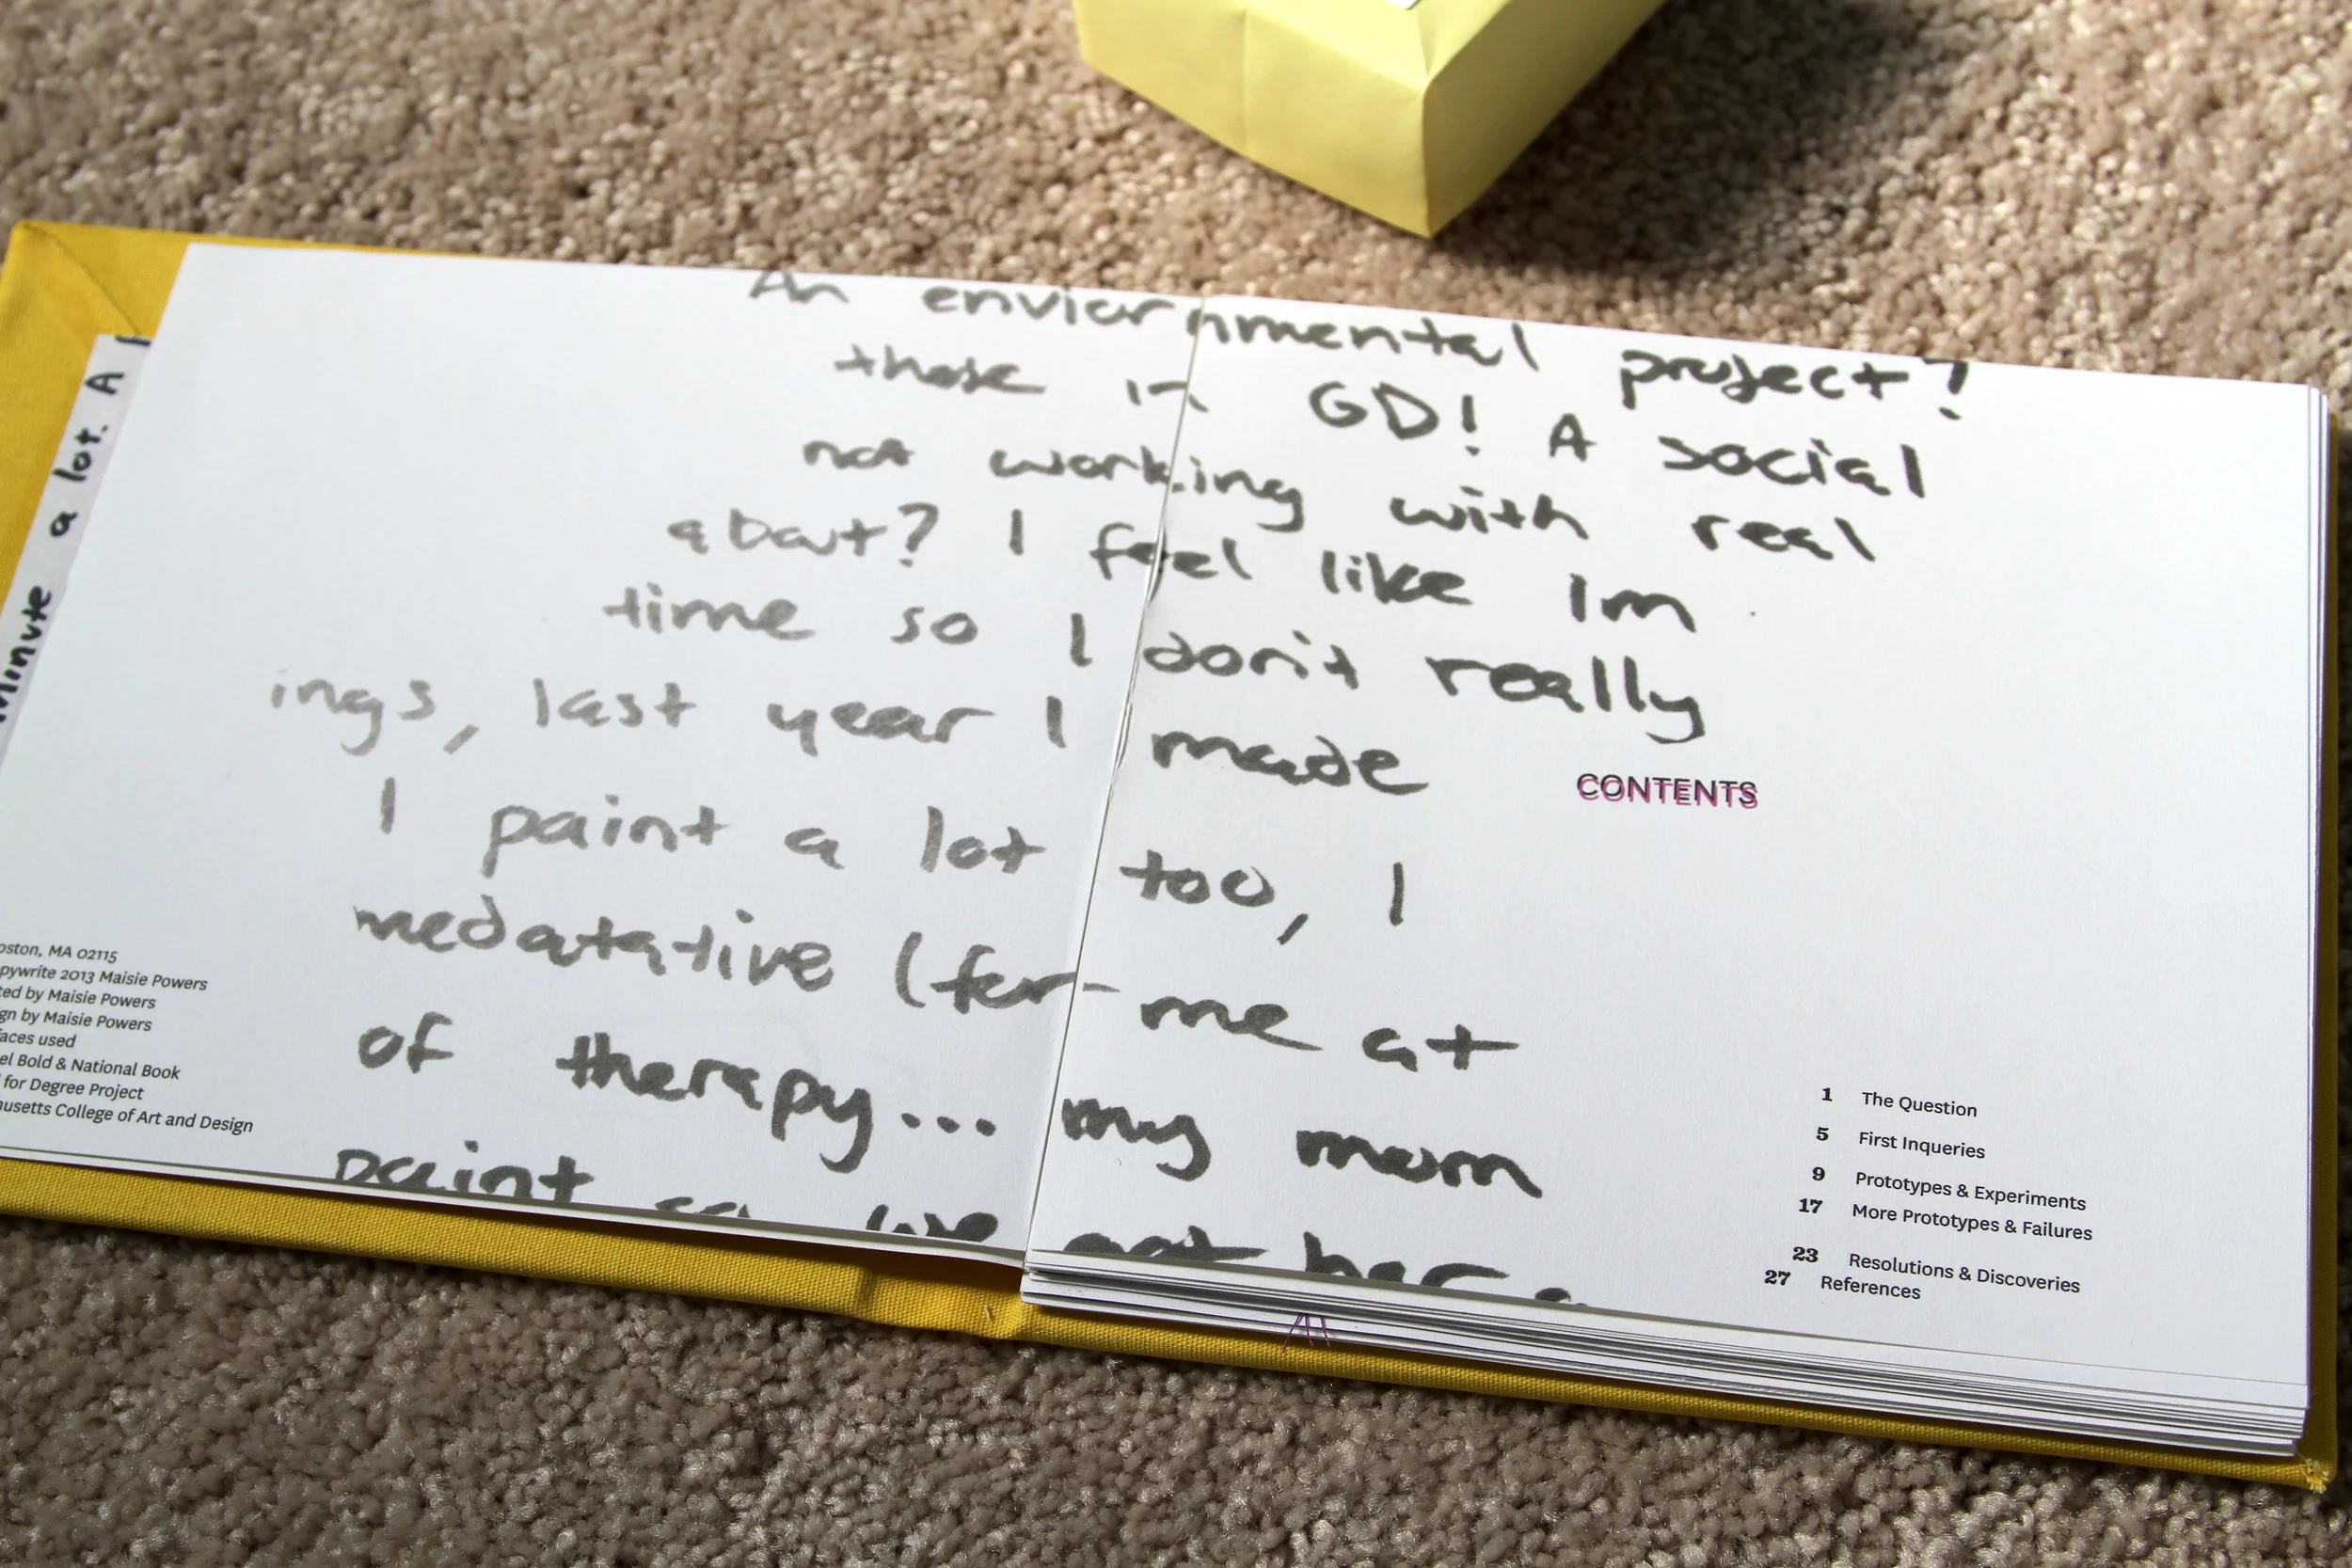 An enviornmental project?
those in GD! A social
not working with real
about? I feel like Im
time so I don't really
ings, last year I made
I paint a lot too, I
medatative (for me at
of therapy... my mom
paint so we got her a
minute a lot. A
oston, MA 02115
pywrite 2013 Maisie Powers
ted by Maisie Powers
gn by Maisie Powers
faces used
el Bold & National Book
for Degree Project
husetts College of Art and Design
CONTENTS
1 The Question
5 First Inqueries
9 Prototypes & Experiments
17 More Prototypes & Failures
23 Resolutions & Discoveries
27 References